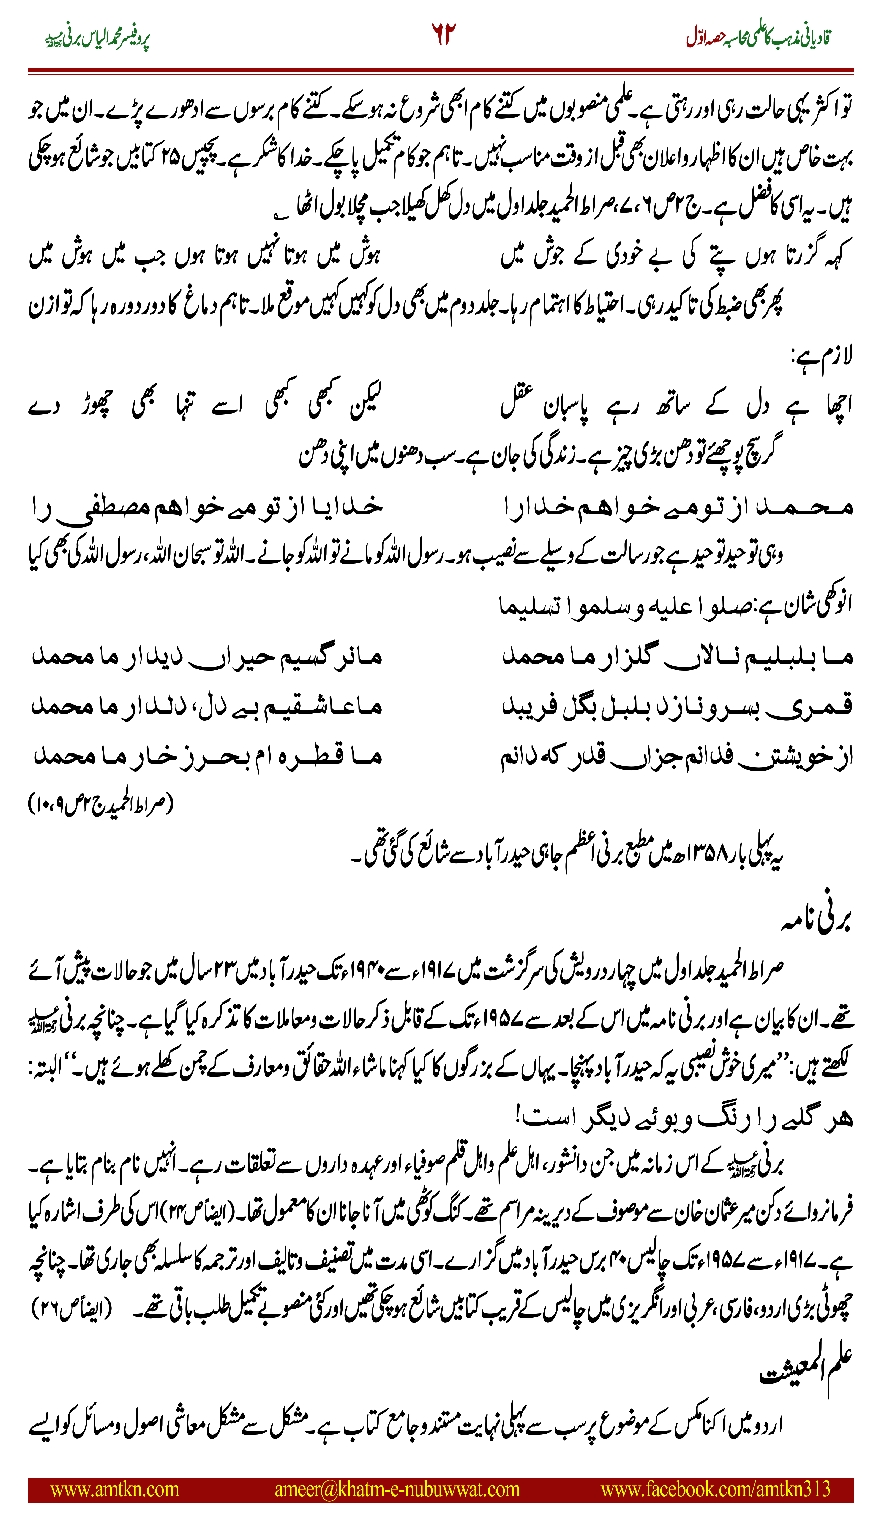 قادیانی مذہب کا علمی محاسبہ حصہ اوّل ۶۲ پروفیسر محمد الیاس برنی
تو اکثر یہی حالت رہی اور رہتی ہے۔ علمی منصوبوں میں کتنے کام ابھی شروع نہ ہو سکے۔ کتنے کام برسوں سے ادھورے پڑے۔ ان میں جو
بہت خاص ہیں ان کا اظہار و اعلان بھی قبل از وقت مناسب نہیں۔ تاہم جو کام تکمیل پا چکے۔ خدا کا شکر ہے۔ پچیس ۲۵ کتابیں جو شائع ہو چکی
ہیں۔ یہ اسی کا فضل ہے۔ ج۲ ص۶،۷، صراط الحمید جلد اول میں دل کھل کھیلا جب مچلا بول اٹھا ؎
کہہ گزرتا ہوں پتے کی بے خودی کے جوش میں ہوش میں ہوتا نہیں ہوتا ہوں جب میں ہوش میں
پھر بھی ضبط کی تاکید رہی۔ احتیاط کا اہتمام رہا۔ جلد دوم میں بھی دل کو کہیں کہیں موقع ملا۔ تاہم دماغ کا دور دورہ رہا کہ توازن
لازم ہے:
اچھا ہے دل کے ساتھ رہے پاسبان عقل لیکن کبھی کبھی اسے تنہا بھی چھوڑ دے
گر سچ پوچھئے تو دھن بڑی چیز ہے۔ زندگی کی جان ہے۔ سب دھنوں میں اپنی دھن
محمد از تو مے خواہم خدارا خدایا از تو مے خواہم مصطفی را
وہی توحید توحید ہے جو رسالت کے وسیلے سے نصیب ہو۔ رسول اللہ کو مانے تو اللہ کو جانے۔ اللہ تو سبحان اللہ، رسول اللہ کی بھی کیا
انوکھی شان ہے: صلوا علیه وسلموا تسلیما
ما بلبلیم نالاں گلزار ما محمد ما نرگسیم حیراں دیدار ما محمد
قمری بسرو نازد بلبل بگل فریبد ما عاشقیم بے دل، دلدار ما محمد
از خویشتن فدانم جزاں قدر کہ دانم ما قطرہ ام بحرز خار ما محمد
(صراط الحمید ج۲ ص۹،۱۰)
یہ پہلی بار ۱۳۵۸ھ میں مطبع برنی اعظم جاہی حیدرآباد سے شائع کی گئی تھی۔
برنی نامہ
صراط الحمید جلد اول میں چہار درویش کی سرگزشت میں ۱۹۱۷ء سے ۱۹۴۰ء تک حیدرآباد میں ۲۳ سال میں جو حالات پیش آئے
تھے۔ ان کا بیان ہے اور برنی نامہ میں اس کے بعد سے ۱۹۵۷ء تک کے قابل ذکر حالات و معاملات کا تذکرہ کیا گیا ہے۔ چنانچہ برنی
لکھتے ہیں: ’’میری خوش نصیبی یہ کہ حیدرآباد پہنچا۔ یہاں کے بزرگوں کا کیا کہنا ماشاء اللہ حقائق و معارف کے چمن کھلے ہوئے ہیں۔‘‘ البتہ:
ہر گلے را رنگ و بوئے دیگر است!
برنی کے اس زمانہ میں جن دانشور، اہل علم و اہل قلم صوفیاء اور عہدہ داروں سے تعلقات رہے۔ انہیں نام بنام بتایا ہے۔
فرمانروائے دکن میر عثمان خان سے موصوف کے دیرینہ مراسم تھے۔ کنگ کوٹھی میں آنا جانا ان کا معمول تھا۔ (ایضاً ص۲۴) اس کی طرف اشارہ کیا
ہے۔ ۱۹۱۷ء سے ۱۹۵۷ء تک چالیس ۴۰ برس حیدرآباد میں گزارے۔ اسی مدت میں تصنیف و تالیف اور ترجمہ کا سلسلہ بھی جاری تھا۔ چنانچہ
چھوٹی بڑی اردو، فارسی، عربی اور انگریزی میں چالیس کے قریب کتابیں شائع ہو چکی تھیں اور کئی منصوبے تکمیل طلب باقی تھے۔ (ایضاً ص۲۶)
علم المعیشت
اردو میں اکنامکس کے موضوع پر سب سے پہلی نہایت مستند و جامع کتاب ہے۔ مشکل سے مشکل معاشی اصول و مسائل کو ایسے
www.amtkn.com ameer@khatm-e-nubuwwat.com www.facebook.com/amtkn313